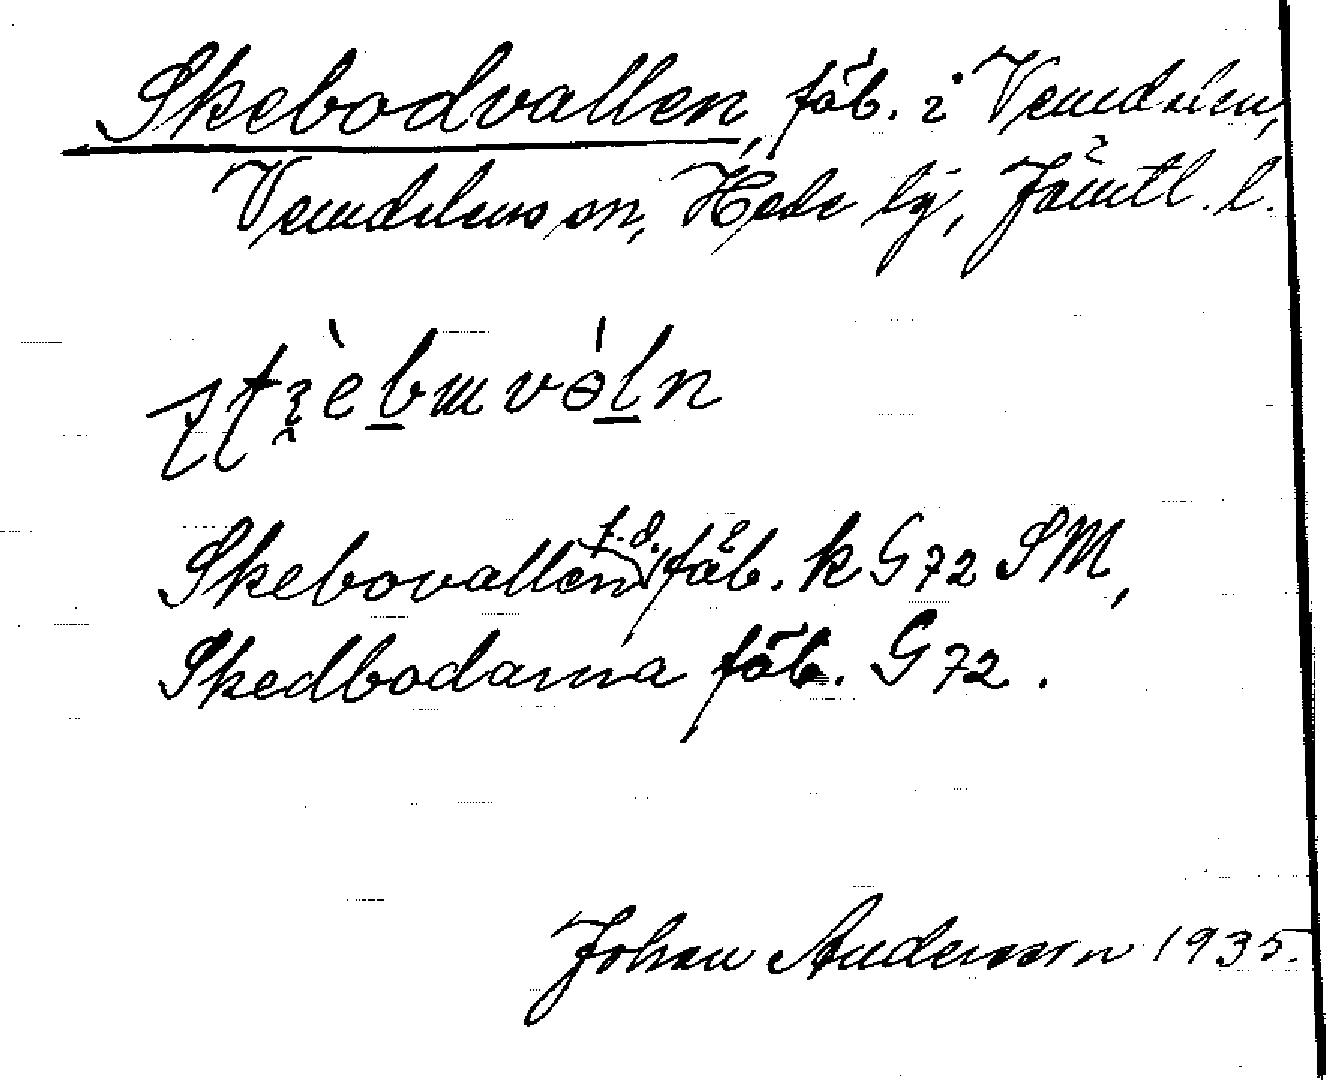 Skebodvallen, fäb. i Vemdalen,
Vemdalens sn, Hede tg, Jämtl. l.
Skebovallen f.d. fäb. k G 72 SM,
Skedbodarna fäb. G 72.
Johan Andersson 1935.